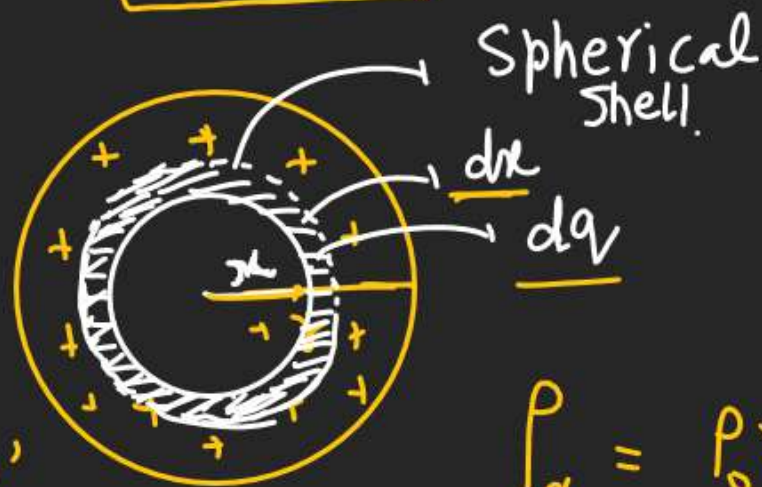 Spherical
Shell.
dx
dq
x
ρ = ρ